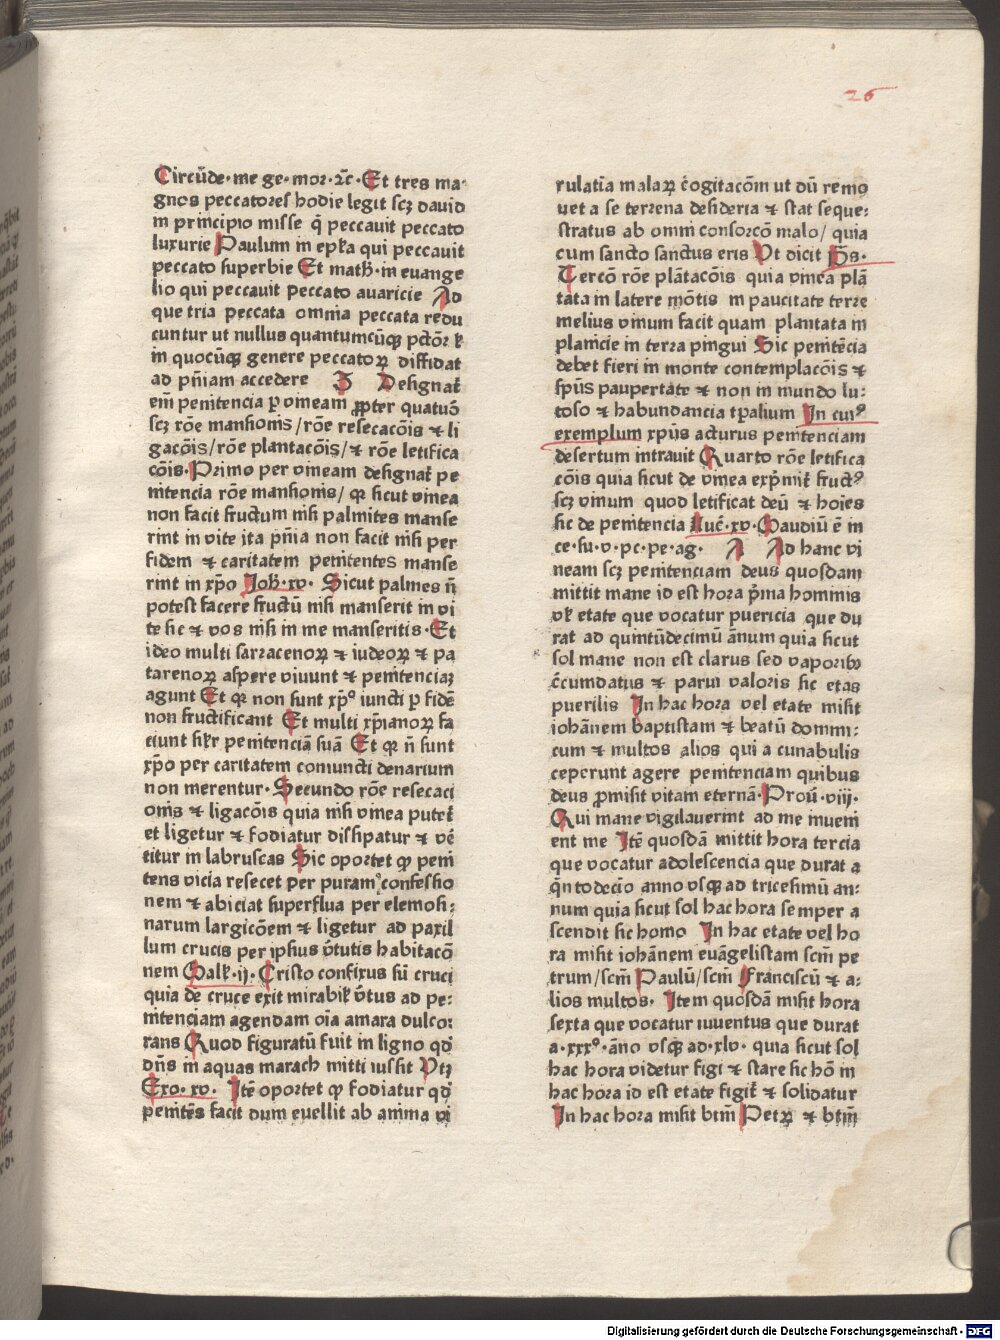 26
Circūde·me ge·mor·ꝛc·Et tres ma-
gnos peccatores hodie legit scꝫ dauid
in principio misse q̄ peccauit peccato
luxurie Paulum in epl̓a qui peccauit
peccato superbie Et math̓·in euange
lio qui peccauit peccato auaricie Ad
que tria peccata omnia peccata redu
cuntur ut nullus quantumcūqꝫ pctōr l̓
in quocūqꝫ genere peccatoꝝ diffidat
ad pn̄iam accedere Designat̓
em̄ penitencia p vineam ꝓpter quatuō
scꝫ rōe mansionis/rōe resecacōis ⁊ li
gacōis/rōe plantacōis/⁊ rōe letifica
cōis·Primo per vineam designat̓ pe
nitencia rōe mansionis/qꝛ sicut vinea
non facit fructum nisi palmites manse
rint in vite ita pn̄ia non facit nisi per
fidem ⁊ caritatem penitentes manse
rint in xp̄o Joh̓·xv· Sicut palmes n̄
potest facere fructū nisi manserit in vi
te sic ⁊ vos nisi in me manseritis·Et
ideo multi sarracenoꝝ ⁊ iudeoꝝ ⁊ pa
tarenoꝝ aspere viuunt ⁊ penitenciaꝫ
agunt Et qꝛ non sunt xp̄⁹ iuncti p fidē
non fructificant Et multi xp̄ianoꝝ fa
ciunt sil̓r penitenciā suā Et qꝛ n̄ sunt
xp̄o per caritatem coniuncti denarium
non merentur·Secundo rōe resecaci
onis ⁊ ligacōis quia nisi vinea putet̓
et ligetur ⁊ fodiatur dissipatur ⁊ v̄e
titur in labruscas Sic oportet qꝙ peni
tens vicia resecet per puram confessio
nem ⁊ abiciat superflua per elemosi;
narum largicōem ⁊ ligetur ad paxil
lum crucis per ipsius v̄tutis habitacō
nem Galł·ij·Cristo confixus sū cruci
quia de cruce exit mirabił v̄tus ad pe:
nitenciam agendam oīa amara dulco:
rans Quod figuratū fuit in ligno qḋ
dn̄s in aquas marach mitti iussit Vtꝫ
Exo·xv· Itē oportet qꝙ fodiatur qḋ
penitēs facit dum euellit ab anima vi
rulatia malaꝝ cogitacōm ut dū remo
uet a se terrena desideria ⁊ stat seque:
stratus ab omni consorcō malo/ quia
cum sancto sanctus eris Vt dicit p̄s·
Tercō rōe plātacōis quia vinea plā
tata in latere mōtis in paucitate terre
melius vinum facit quam plantata in
planicie in terra pingui Sic penitēcia
debet fieri in monte contemplacōis ⁊
sp̄us paupertate ⁊ non in mundo lu-
toso ⁊ habundancia tp̄alium In cui⁹
exemplum xp̄us acturus penitenciam
desertum intrauit Quarto rōe letifica
cōis quia sicut de vinea exp̄mit̓ fruct⁹
scꝫ vinum quod letificat deū ⁊ hoies
sic de penitencia Luc̄·xv·Gaudiū ē in
ce·su·v·pc·pe·ag· A Ad hanc vi
neam scꝫ penitenciam deus quosdam
mittit mane id est hora p̄ma hominis
vl̓ etate que vocatur puericia que du
rat ad quintūdecimū ānum quia sicut
sol mane non est clarus sed vaporibꝫ
c̄cumdatus ⁊ parui valoris sic etas
puerilis In hac hora vel etate misit
iohānem baptistam ⁊ beatū domini:
cum ⁊ multos alios qui a cunabulis
ceperunt agere penitenciam quibus
deus ꝓmisit vitam eternā·Prou̅·viij·
Qui mane vigilauerint ad me mueni
ent me Itē quosdā mittit hora tercia
que vocatur adolescencia que durat a
qͥntodecīo anno vsqꝫ ad tricesimū an:
num quia sicut sol hac hora semper a
scendit sic homo In hac etate vel ho
ra misit iohānem euāgelistam scm̄ pe
trum/scm̄ Paulū/scm̄ Franciscū ⁊ a-
lios multos· Item quosdā misit hora
sexta que vocatur iuuentus que durat
a·xxx⁰·āno vsqꝫ ad·xlv· quia sicut sol
hac hora videtur figi ⁊ stare sic hō in
hac hora id est etate figit̓ ⁊ solidatur
In hac hora misit btm̄ Petꝝ ⁊ btm̄
Digitalisierung gefördert durch die Deutsche Forschungsgemeinschaft - DFG